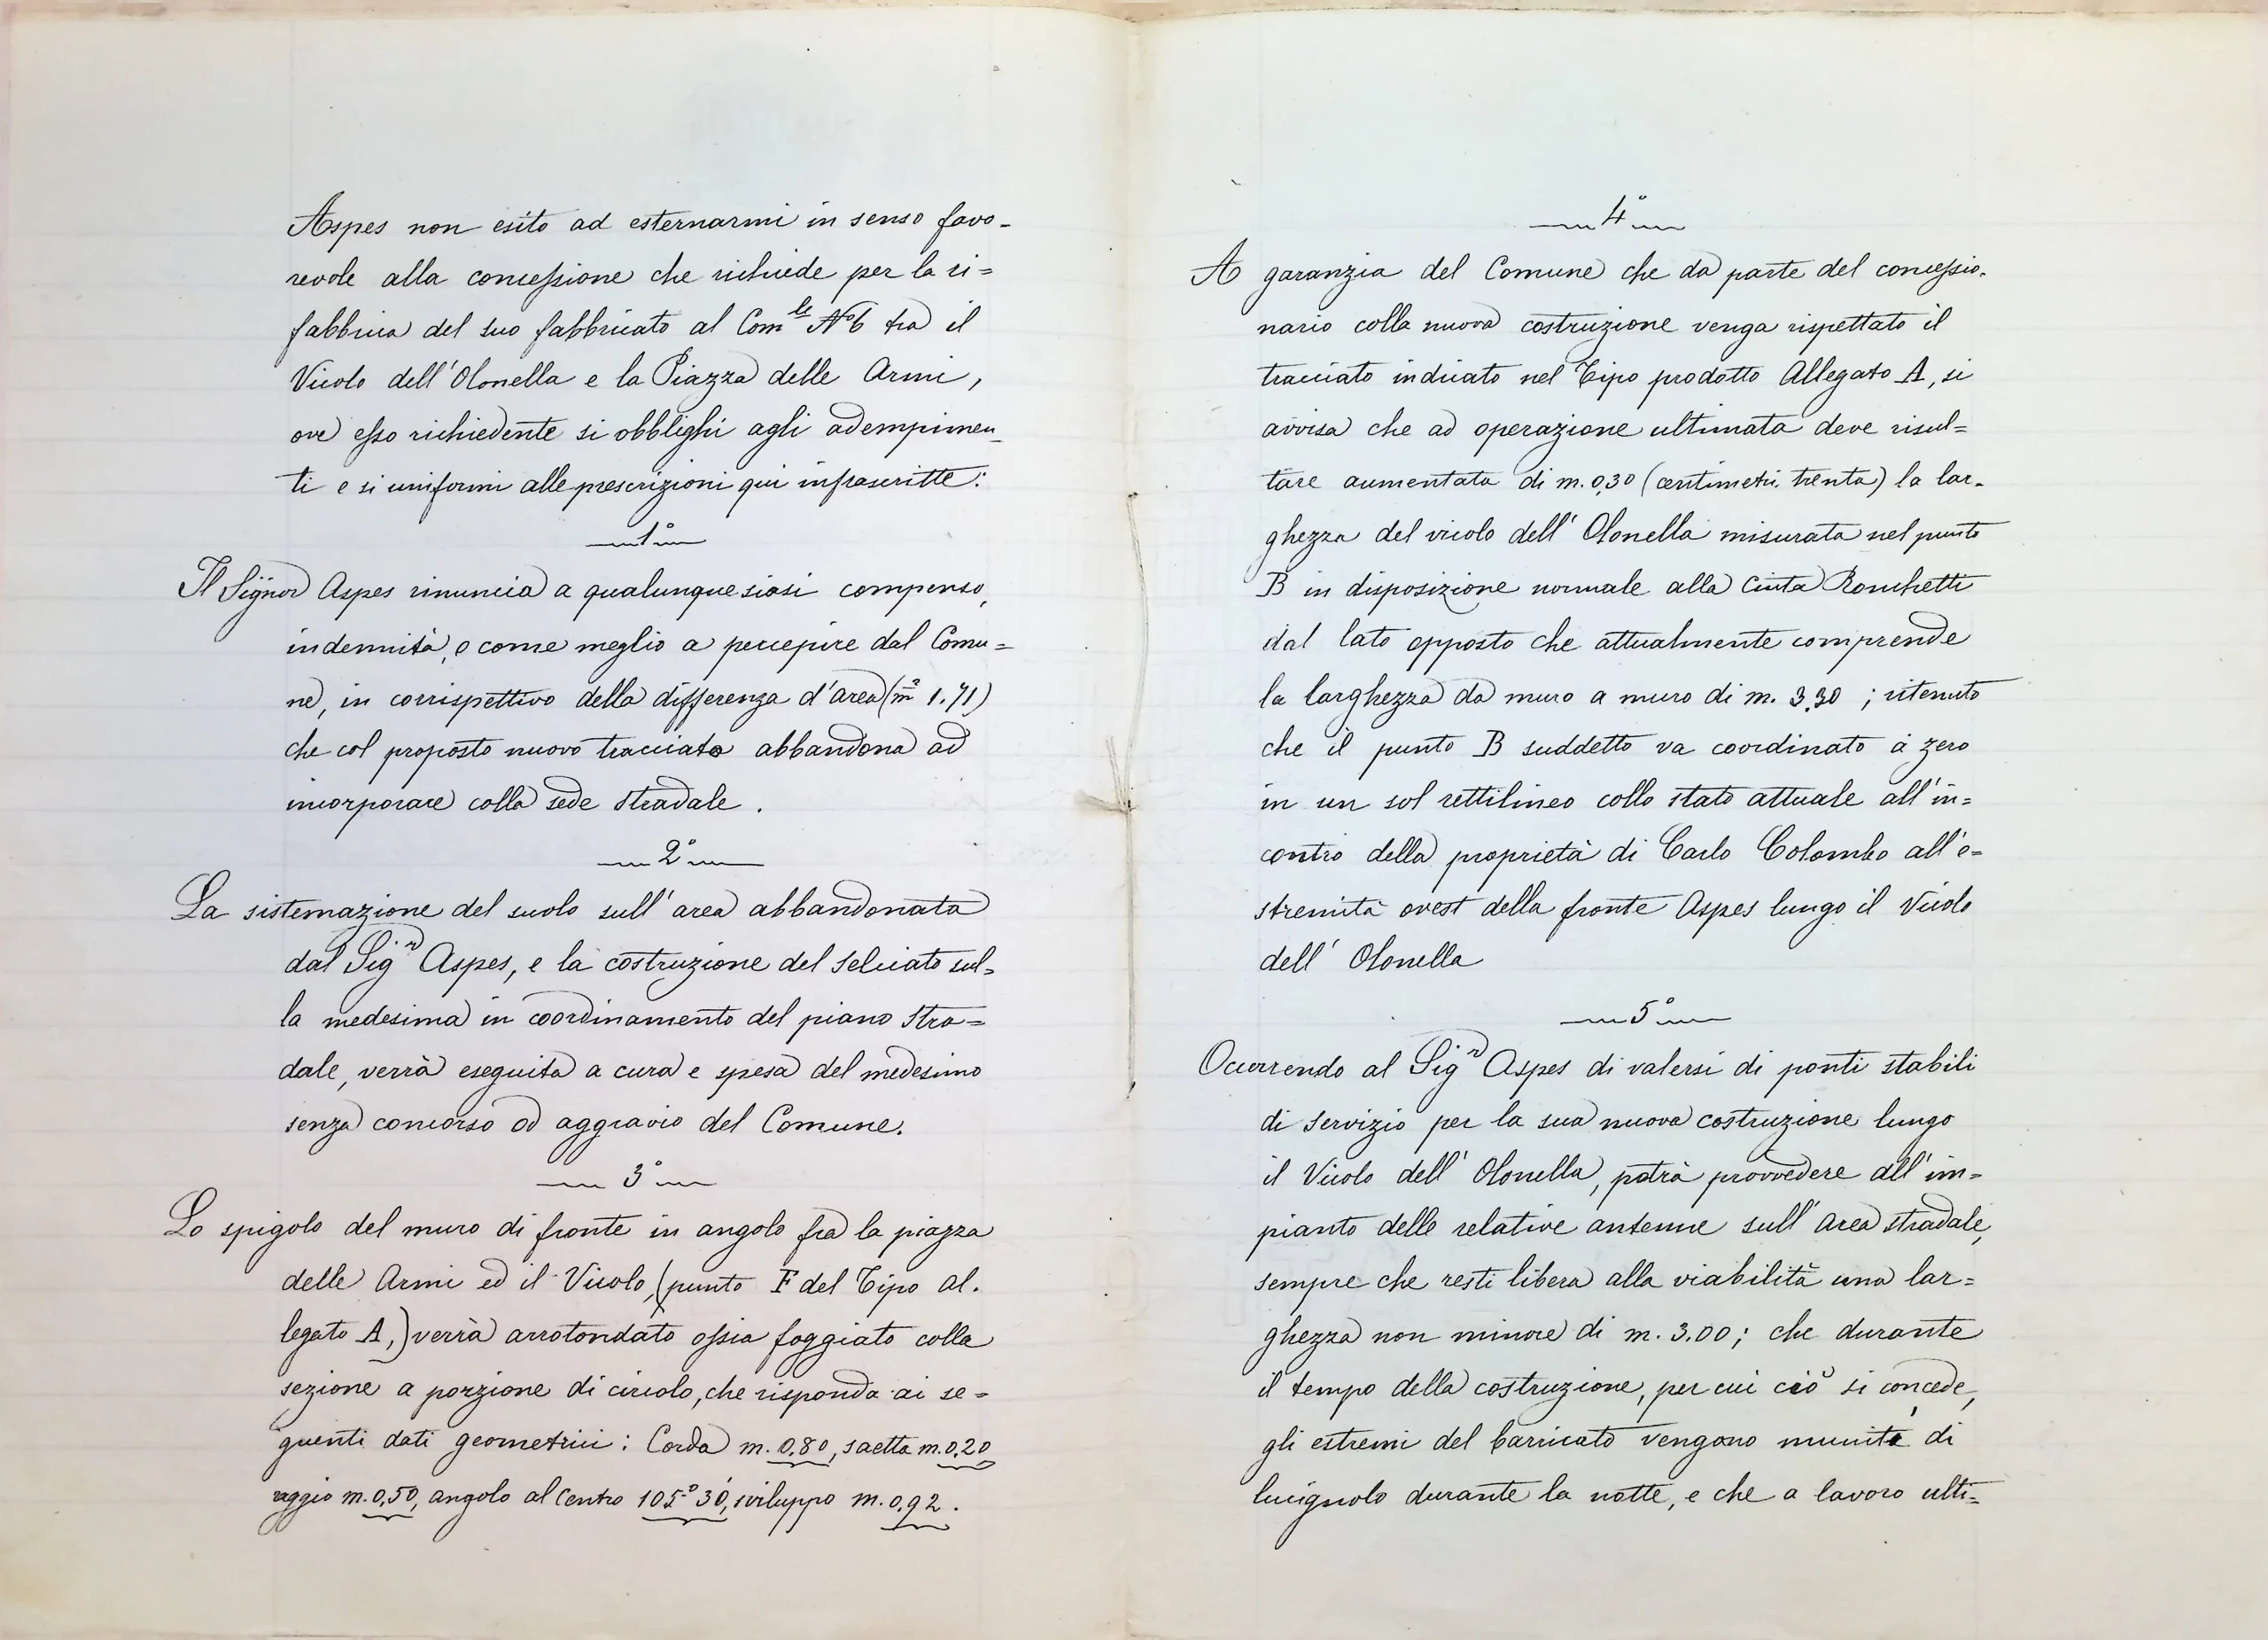 Aspes non esito ad esternarmi in senso favo-
revole alla concessione che richiede per la ri=
fabbrica del suo fabbricato al Com.le N.o 6 tra il
Vicolo dell'Olonella e la Piazza delle Armi,
ove esso richiedente si obblighi agli adempimen_
ti e si uniformi alle prescrizioni qui infrascritte:
1°
Il Signor Aspes rinuncia a qualunque siasi compenso,
indennità, o come meglio a percepire dal Comu=
ne, in corrispettivo della differenza d'area (m² 1.71)
che col proposto nuovo tracciato abbandona ad
incorporare colla sede stradale.
2°
La sistemazione del suolo sull'area abbandonata
dal Sig.r Aspes, e la costruzione del selciato sul=
la medesima in coordinamento del piano stra=
dale, verrà eseguita a cura e spesa del medesimo
senza concorso od aggravio del Comune.
3°
Lo spigolo del muro di fronte in angolo fra la piazza
delle Armi ed il Vicolo, (punto F del Tipo al.
legato A,) verrà arrotondato ossia foggiato colla
sezione a porzione di circolo, che risponda ai se=
guenti dati geometrici: Corda m. 0.80, saetta m. 0.20
raggio m. 0,50, angolo al Centro 105.° 30', sviluppo m. 0,92.
4°
A garanzia del Comune che da parte del concessio.
nario colla nuova costruzione venga rispettato il
tracciato indicato nel Tipo prodotto Allegato A, si
avvisa che ad operazione ultimata deve risul=
tare aumentata di m. 0,30 (centimetri trenta) la lar-
ghezza del vicolo dell'Olonella misurata nel punto
B in disposizione normale alla Cinta Ronchetti
dal lato opposto che attualmente comprende
la larghezza da muro a muro di m. 3.30; ritenuto
che il punto B suddetto va coordinato a zero
in un sol rettilineo collo stato attuale all'in=
contro della proprietà di Carlo Colombo all'e=
stremità ovest della fronte Aspes lungo il Vicolo
dell'Olonella
5°
Occorrendo al Sig.r Aspes di valersi di ponti stabili
di servizio per la sua nuova costruzione lungo
il Vicolo dell'Olonella, potrà provvedere all'im=
pianto delle relative antenne sull'area stradale,
sempre che resti libera alla viabilità una lar=
ghezza non minore di m. 3.00; che durante
il tempo della costruzione, per cui ciò si concede,
gli estremi del barricato vengono muniti di
lucignolo durante la notte, e che a lavoro ulti=